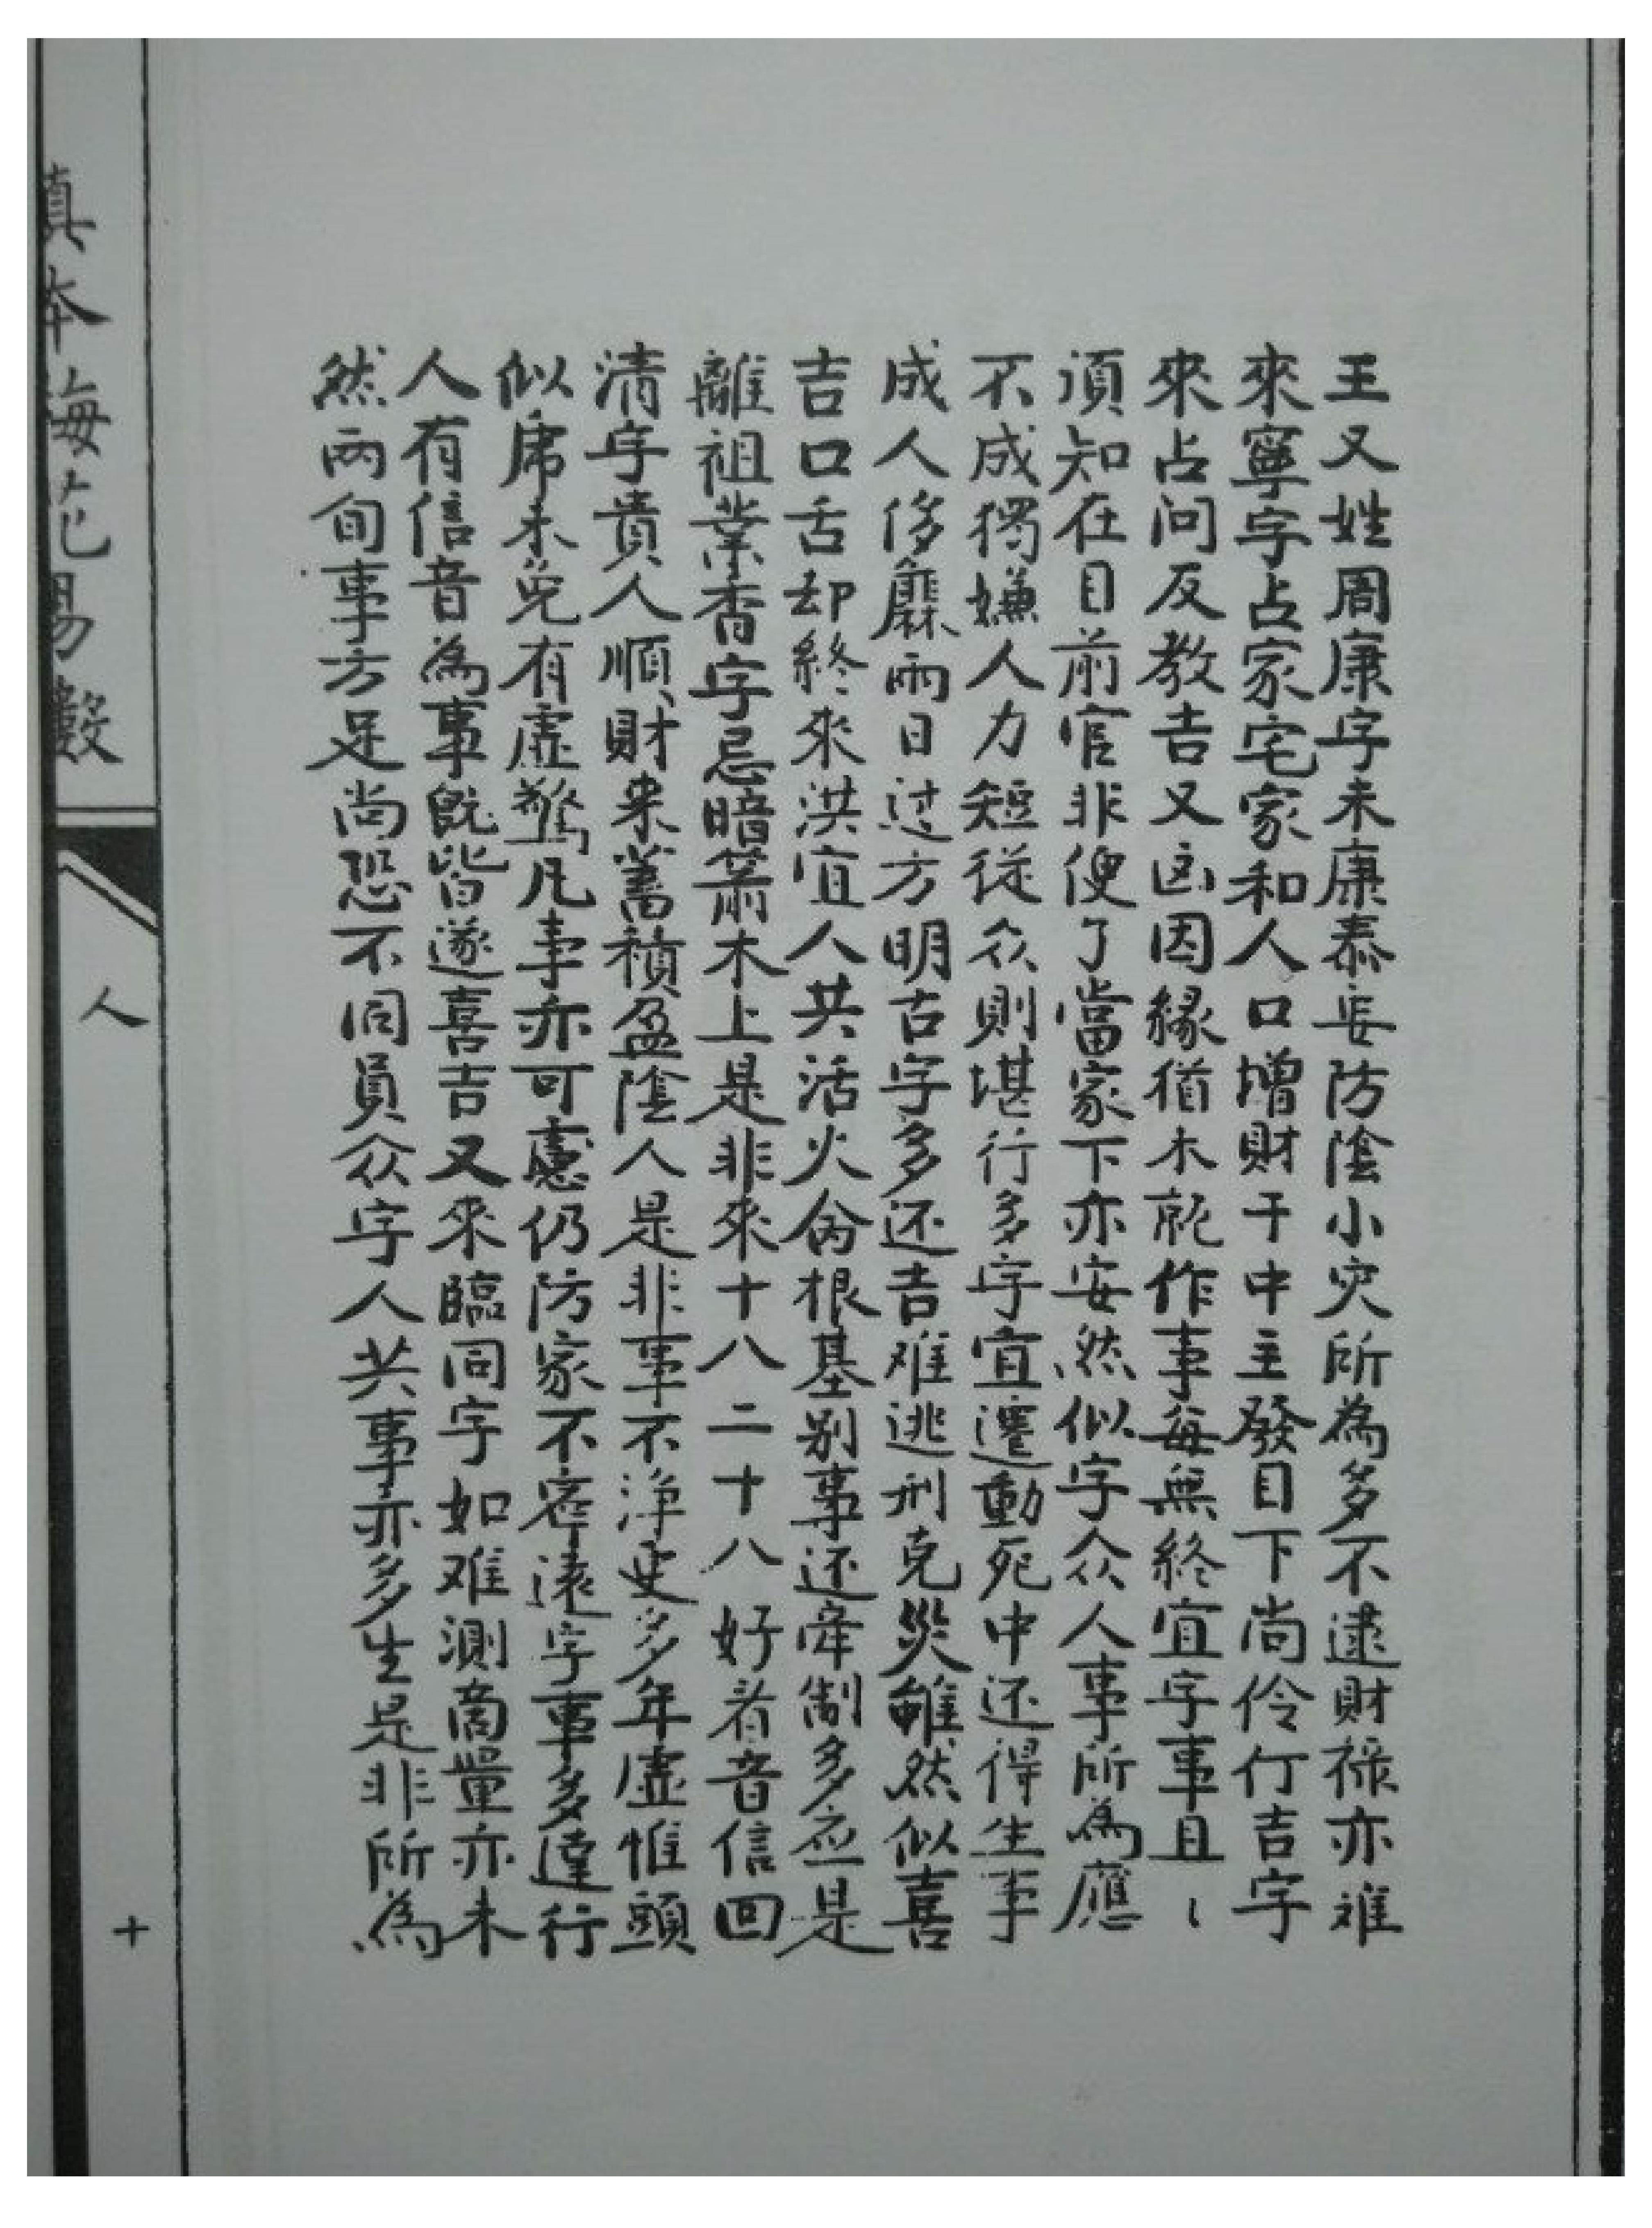 王又姓周康字未康泰妄防陰小灾所為多不逮財祿亦难
來寧字占家宅家和人口增財干中主發目下尚伶仃吉字
來占问反教吉又凶因緣猶木就作事每無終宜字事且
須知在目前官非便了當家下亦安然似字众人事所為應
不成獨嫌人力短從众則堪行多字宜遷動死中还得生事
成人侈靡雨日过方明古字多还吉难逃刑克災雖然似喜
吉口舌却終來洪宜人共活火命根基别事还牵制多应是
離祖業香字忌暗箭木上是非來十八二十八好看音信回
清字貴人順財来蓄積盈陰人是非事不淨更多年虚惟頭
似席未免有虚驚凡事亦可慮仍防家不寧遠字事多達行
人有信音為事既皆遂喜吉又來臨同字如难測商量亦未
然兩旬事方足尚恐不同員众字人共事亦多生是非所為
真本梅花易數
人
十